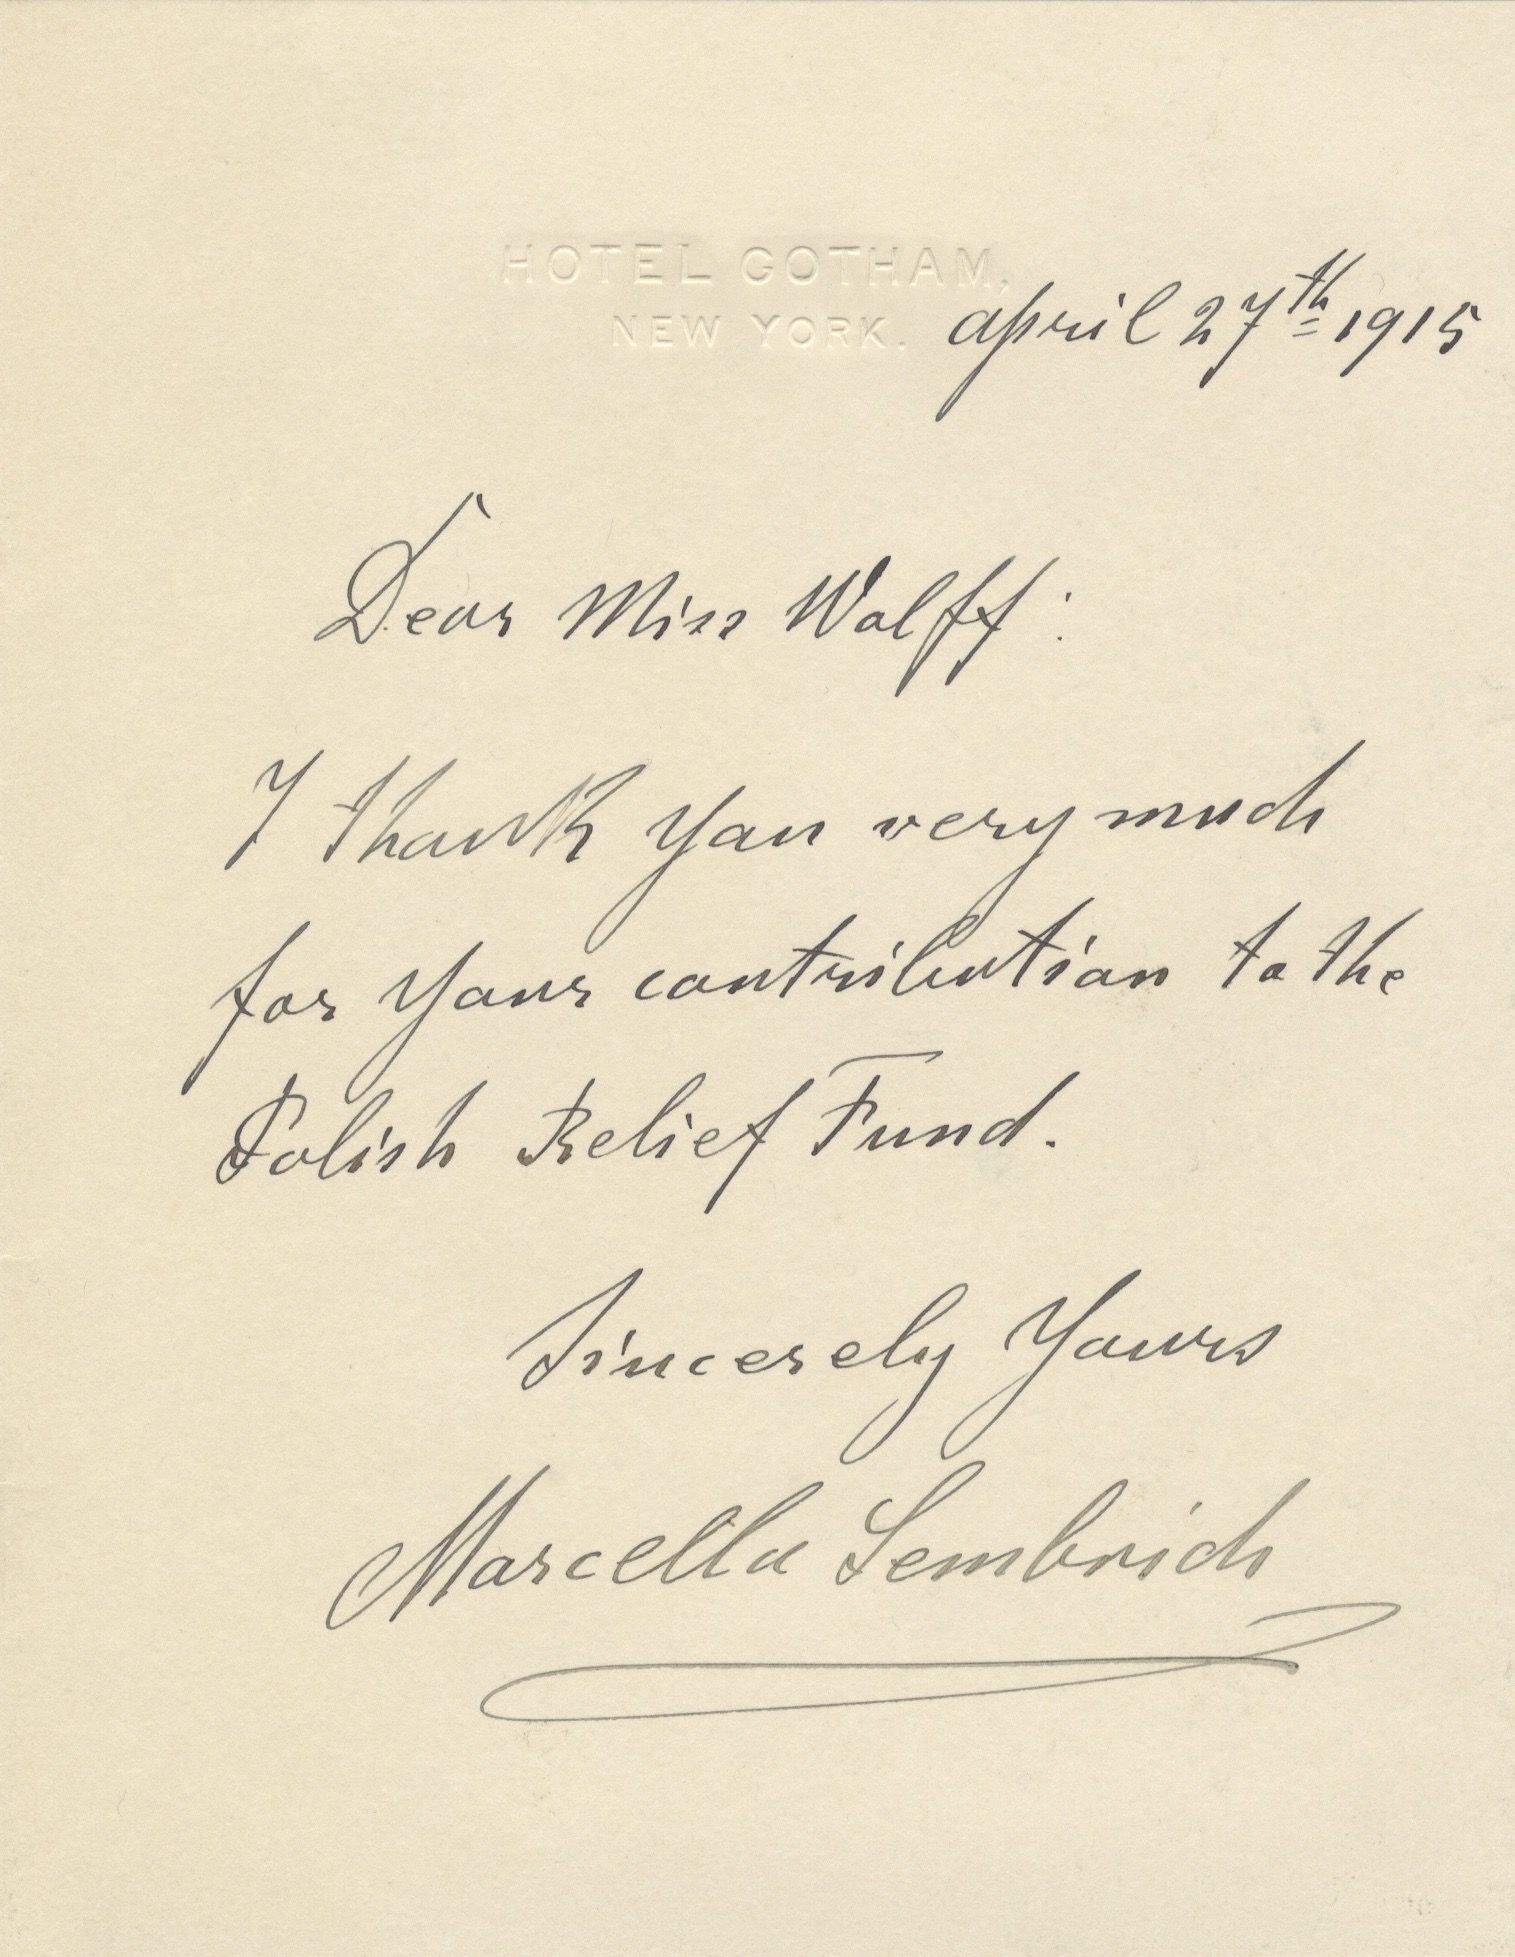 HOTEL GOTHAM,
NEW YORK.
april 27th 1915
Dear Miss Wolff:
I thank You very much
for Your contribution to the
Polish Relief Fund.
Sincerely Yours
Marcella Sembrich